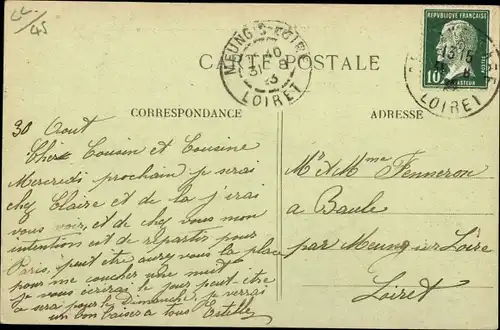 22/45
CARTE POSTALE
MEUNG S-LOIRE
31 8
LOIRET
REPUBLIQUE FRANÇAISE
POSTES
10
PASTEUR
LOIRET
CORRESPONDANCE
ADRESSE
30 Aout
Chers Cousin et Cousine
Mercredi prochain je serai
chez Claire et de la j'irai
vous voir, et de chez vous mon
intention est de répartir pour
Paris, peut être aurez vous la place
pour me coucher une nuit
je vous écrirai le jour peut-être
ce sera pour le Dimanche, je verrai
un bon baiser a tous Estelle
Mr et Mme Fenneron
a Baule
par Meung sur Loire
Loiret